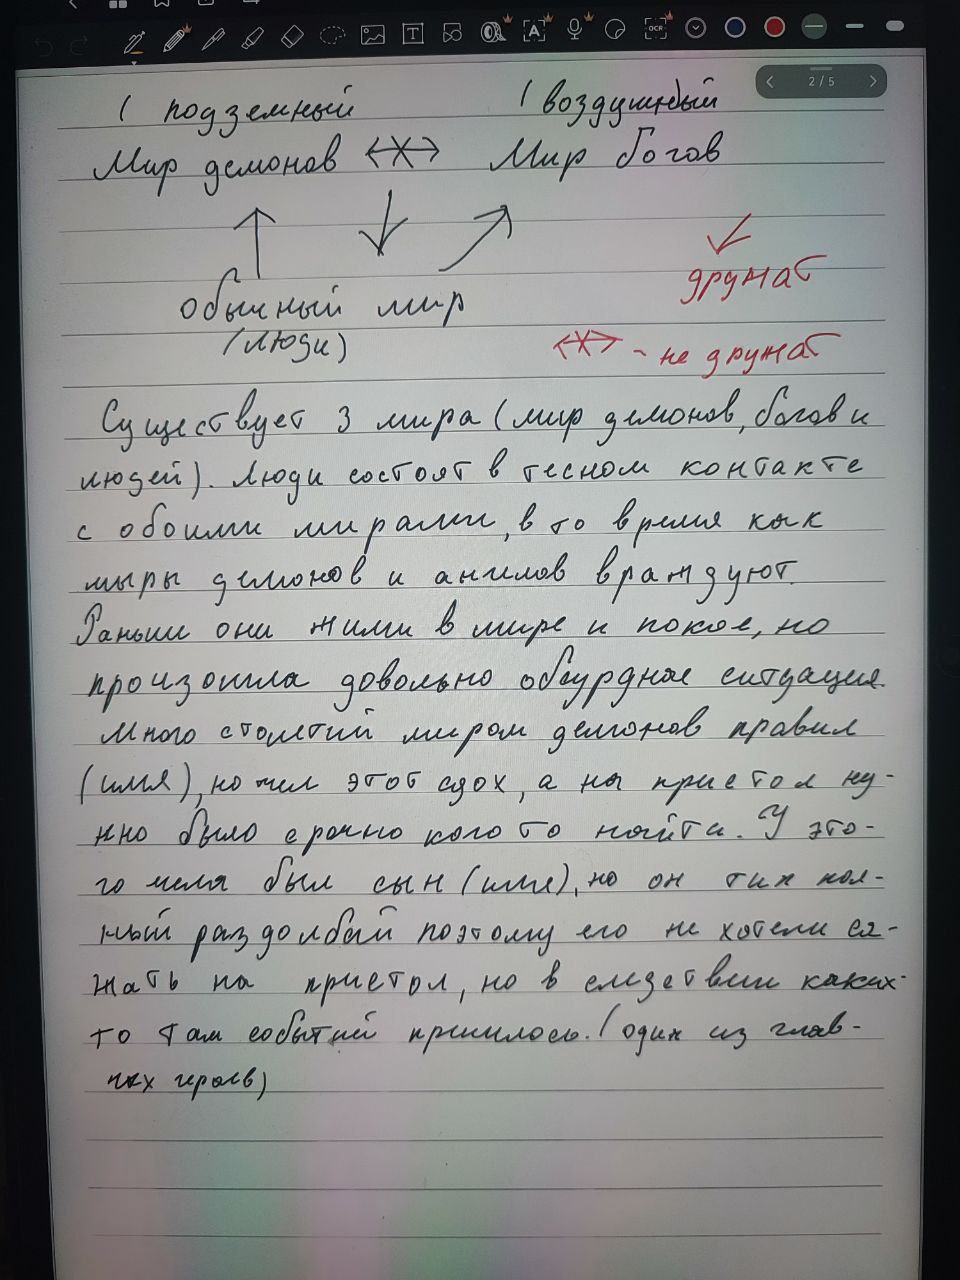 2/5
( подземный ( воздушный
Мир демонов Мир богов
дружат
обычный мир
(люди)
- не дружат
Существует 3 мира (мир демонов, богов и
людей). Люди состоят в тесном контакте
с обоими мирами, в то время как
мыры демонов и ангилов враждуют.
Раньши они жили в мире и покое, но
произошла довольно обсурдная ситуация.
Много столетий миром демонов правил
(имя), но чел этот сдох, а на пристол ну-
жно было срочно кого то найти. У это-
го челя был сын (имя), но он тип пол-
ный раздолбай поэтому его не хотели са-
жать на пристол, но в следствии каких-
то там событий пришлось. (один из глав-
ных героев)